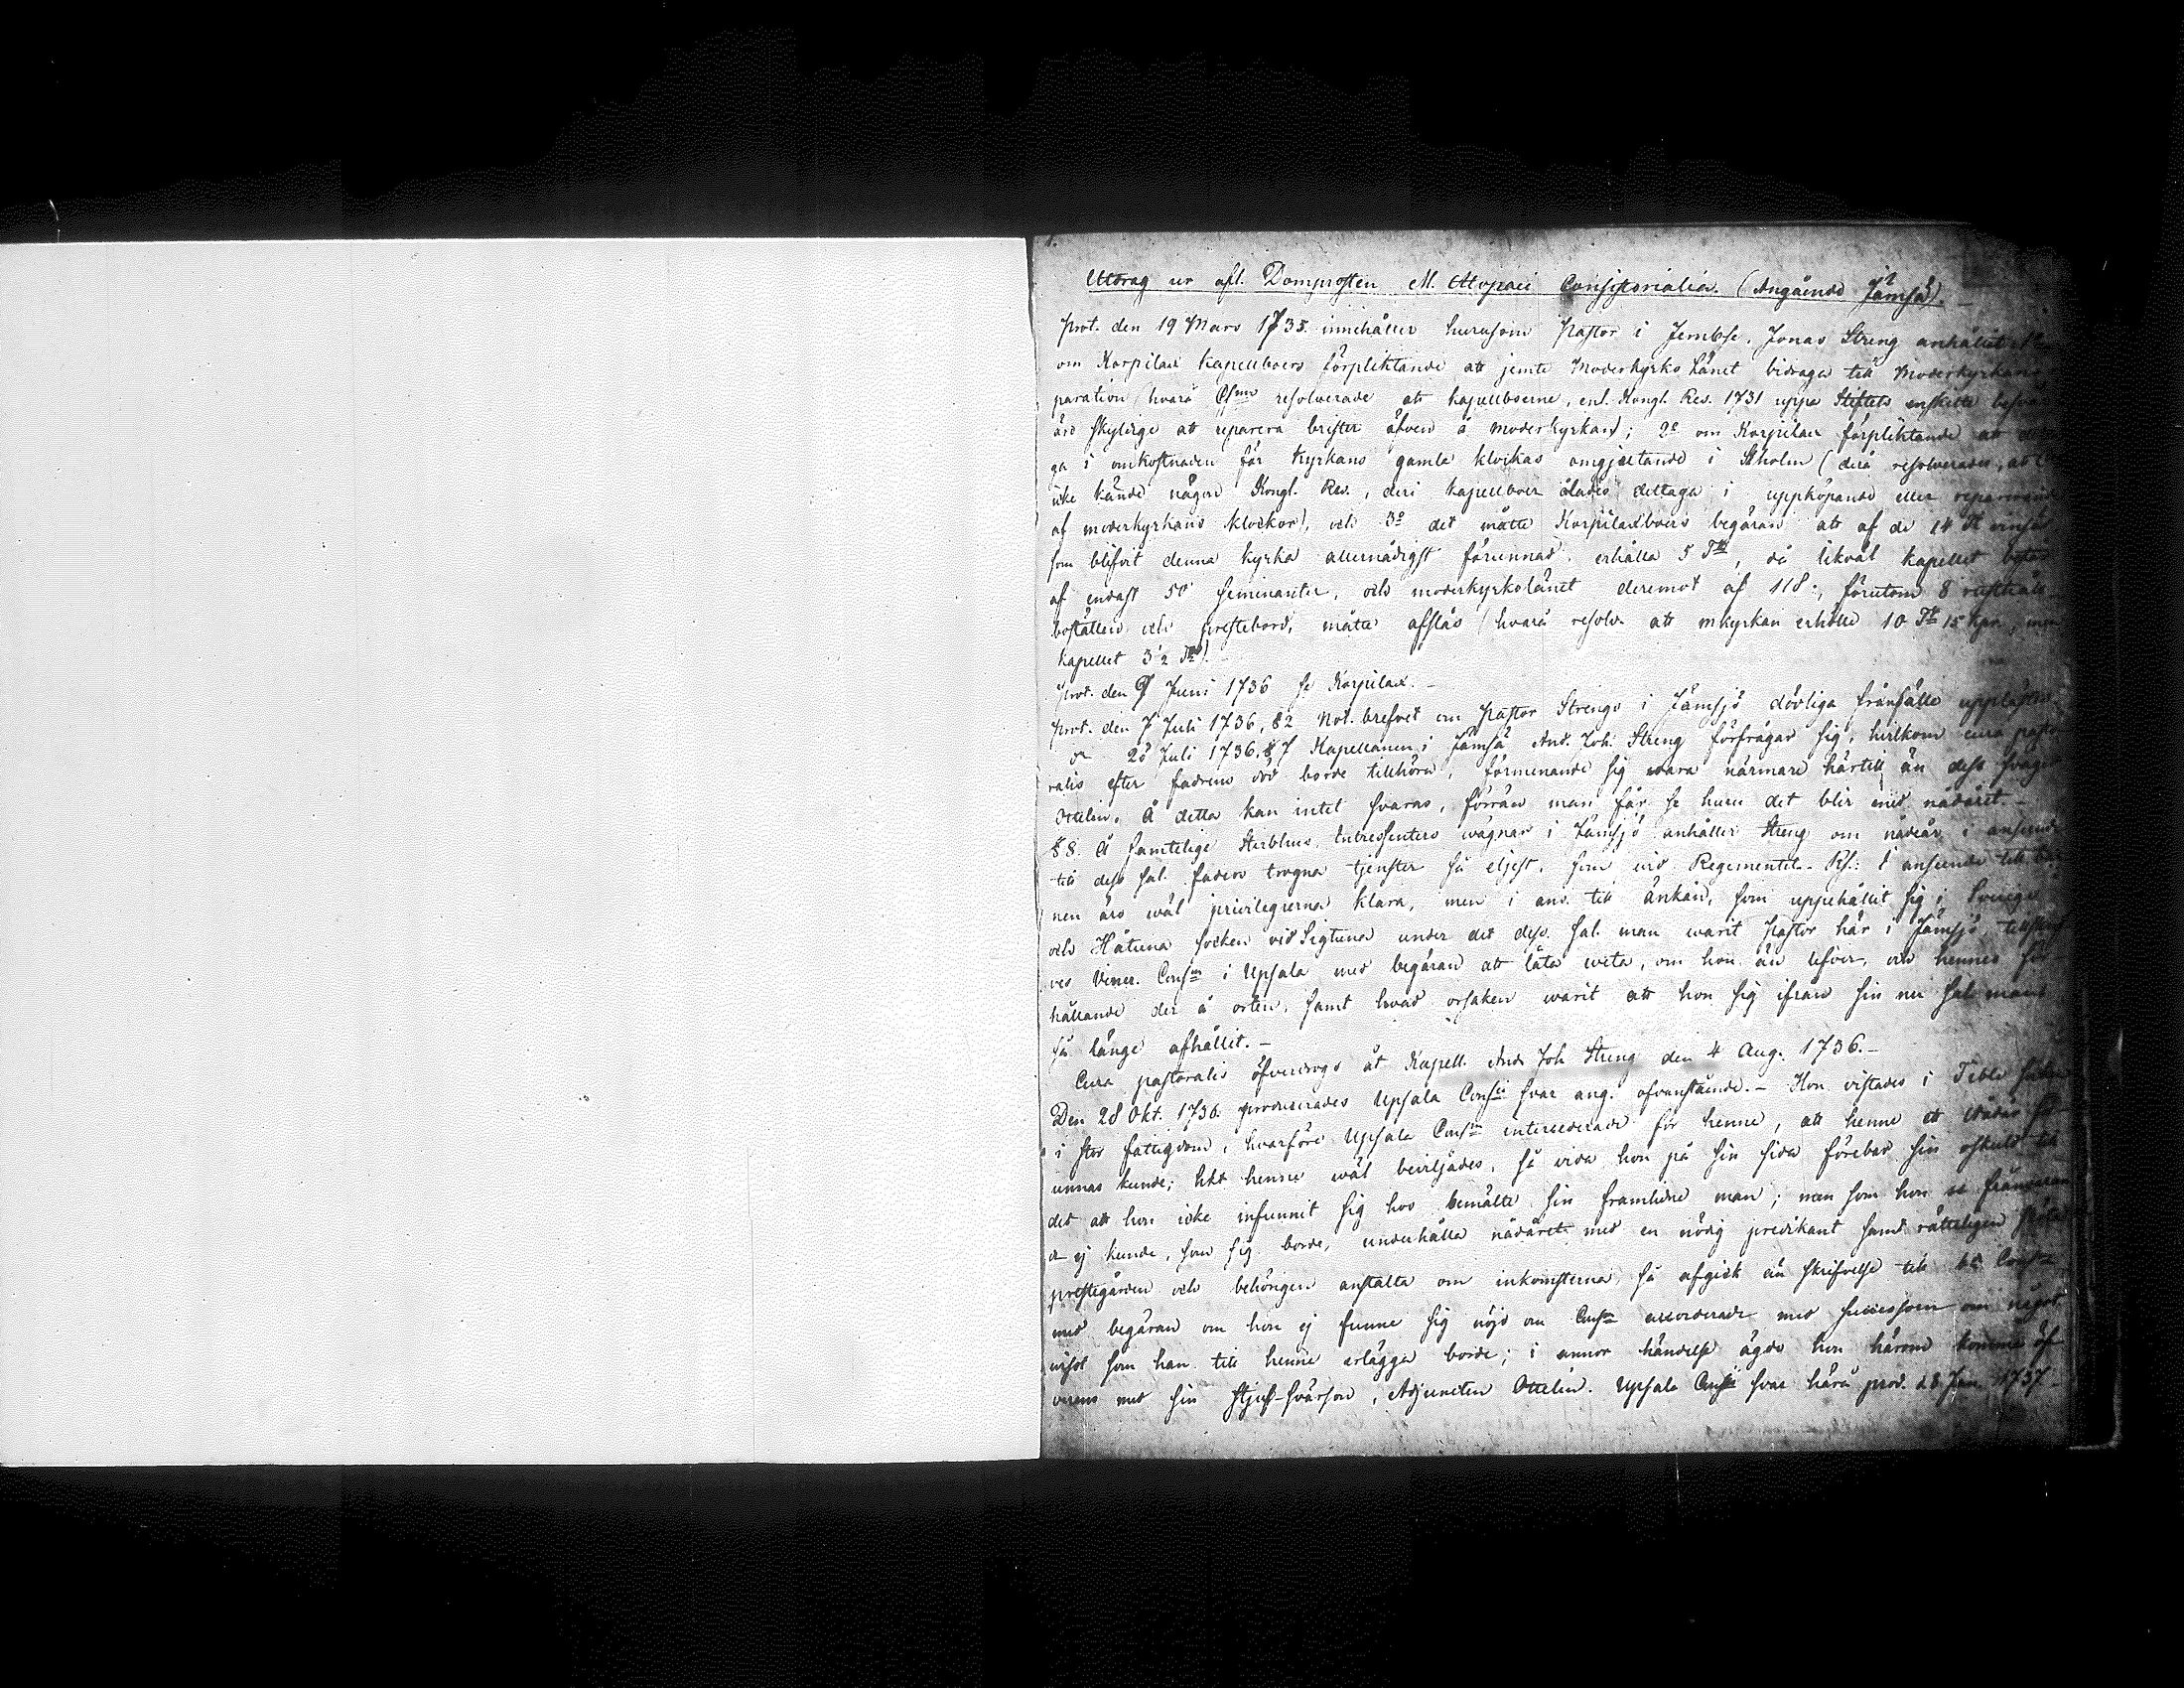 1.
Utdrag ur afl. Domprosten M. Alopaei Consistorialia. (Angående Jämsä).
Prot. den 19 Mars 1735. innehåller hurusom Pastor i Jembse, Jonas Streng anhållit
om Korpilax kapellboers förpliktande att jemte Moderkyrko Länet bidraga till Moderkyrkans
paration (hvarå Csm resolverade att kapellboerne, enl. Kongl. Res. 1731 uppå Stiftets enskilta
äro skyldige att reparera brister äfven å moderkyrkan); 2o om Korpilax förpliktande att
ga i omkostnaden för kyrkans gamla klockas omgjutande i Stholm (derå resolverades, att
icke kände någon Kongl. Res., deri kapellboer ålades deltaga i uppköpande eller reparerande
af moderkyrkans klockor), och 3o det måtte Korpilaxboers begäran att af de 14
som blifvit denna kyrka allernådigst förunnad. erhålla 5 T, då likväl kapellet
af endast 50 seminarier, och moderkyrkolänet deremot af 118:, förutom 8
boställen och prestebord, måtte afslås (hvarå resolv. att mkyrkan erhölle 10 T 15 kpr, men
kapellet 3½ T).
Prot. den 9 Juni 1736 se Korpilax. -
Prot. den 7 Juli 1736, § 2 Not. brefvet om Pastor Strengs i Jämsjö dödliga frånfälle upplästes
28 Juli 1736. § 7 Kapellanen i Jämsä And. Joh. Streng förfrågar sig, hvilkom cura pasto
ralis efter fadrens död borde tillhöra, förmenande sig wara närmare härtill än dess svåger
Ottelin. Å detta kan intet svaras, förrän man får se huru det blir med nådåret. -
§ 8. Å samtelige Sterbhus Intressenters wägnar i Jämsjö anhåller Streng om nådeår, i anseende
till dess sal. faders trogna tjenster så eljest, som vid Regementet. Rs.: I anseende till
nen äro wäl privilegierna klara, men i ans. till änkan, som uppehållit sig i Sverige
och Håtuna socken vid Sigtuna under det dess sal. man warit Pastor här i Jämsjö,
ves Vener. Consm i Upsala med begäran att låta weta, om hon än lefver, och hennes för
hållande der å orten, samt hvad orsaken warit att hon sig ifrån sin nu sal. mans
så länge afhållit. -
Cura pastoralis öfverdrogs åt Kapell. And Joh Streng den 4 Aug. 1736. -
Den 28 Okt. 1736. producerades Upsala Consii svar ang. ofvanstående. - Hon vistades i Tible socken
i stor fattigdom, hvarföre Upsala Consm intercederade för henne, att henne ett nådår
unnas kunde; hkt henne wäl beviljades, så vida hon på sin sida förebar sin oskuld till
det att hon icke infunnit sig hos bemälte sin framlidne man; men som hon
ej kunde, som sig borde, underhålla nådåret med en nödig predikant samt rätteligen sköta
prestegården och behörigen anstalta om inkomsterna, så afgick en skrifvelse till bte Consm
med begäran om hon ej funne sig nöjd om Consm accorderade med successorn om något
visst som han till henne erlägga borde; i annor händelse ägde hon härom komma öf
verens med sin stjuf-svärson, Adjuncten Ottelin. Upsala Consii svar härå prod. 28 Jan. 1737